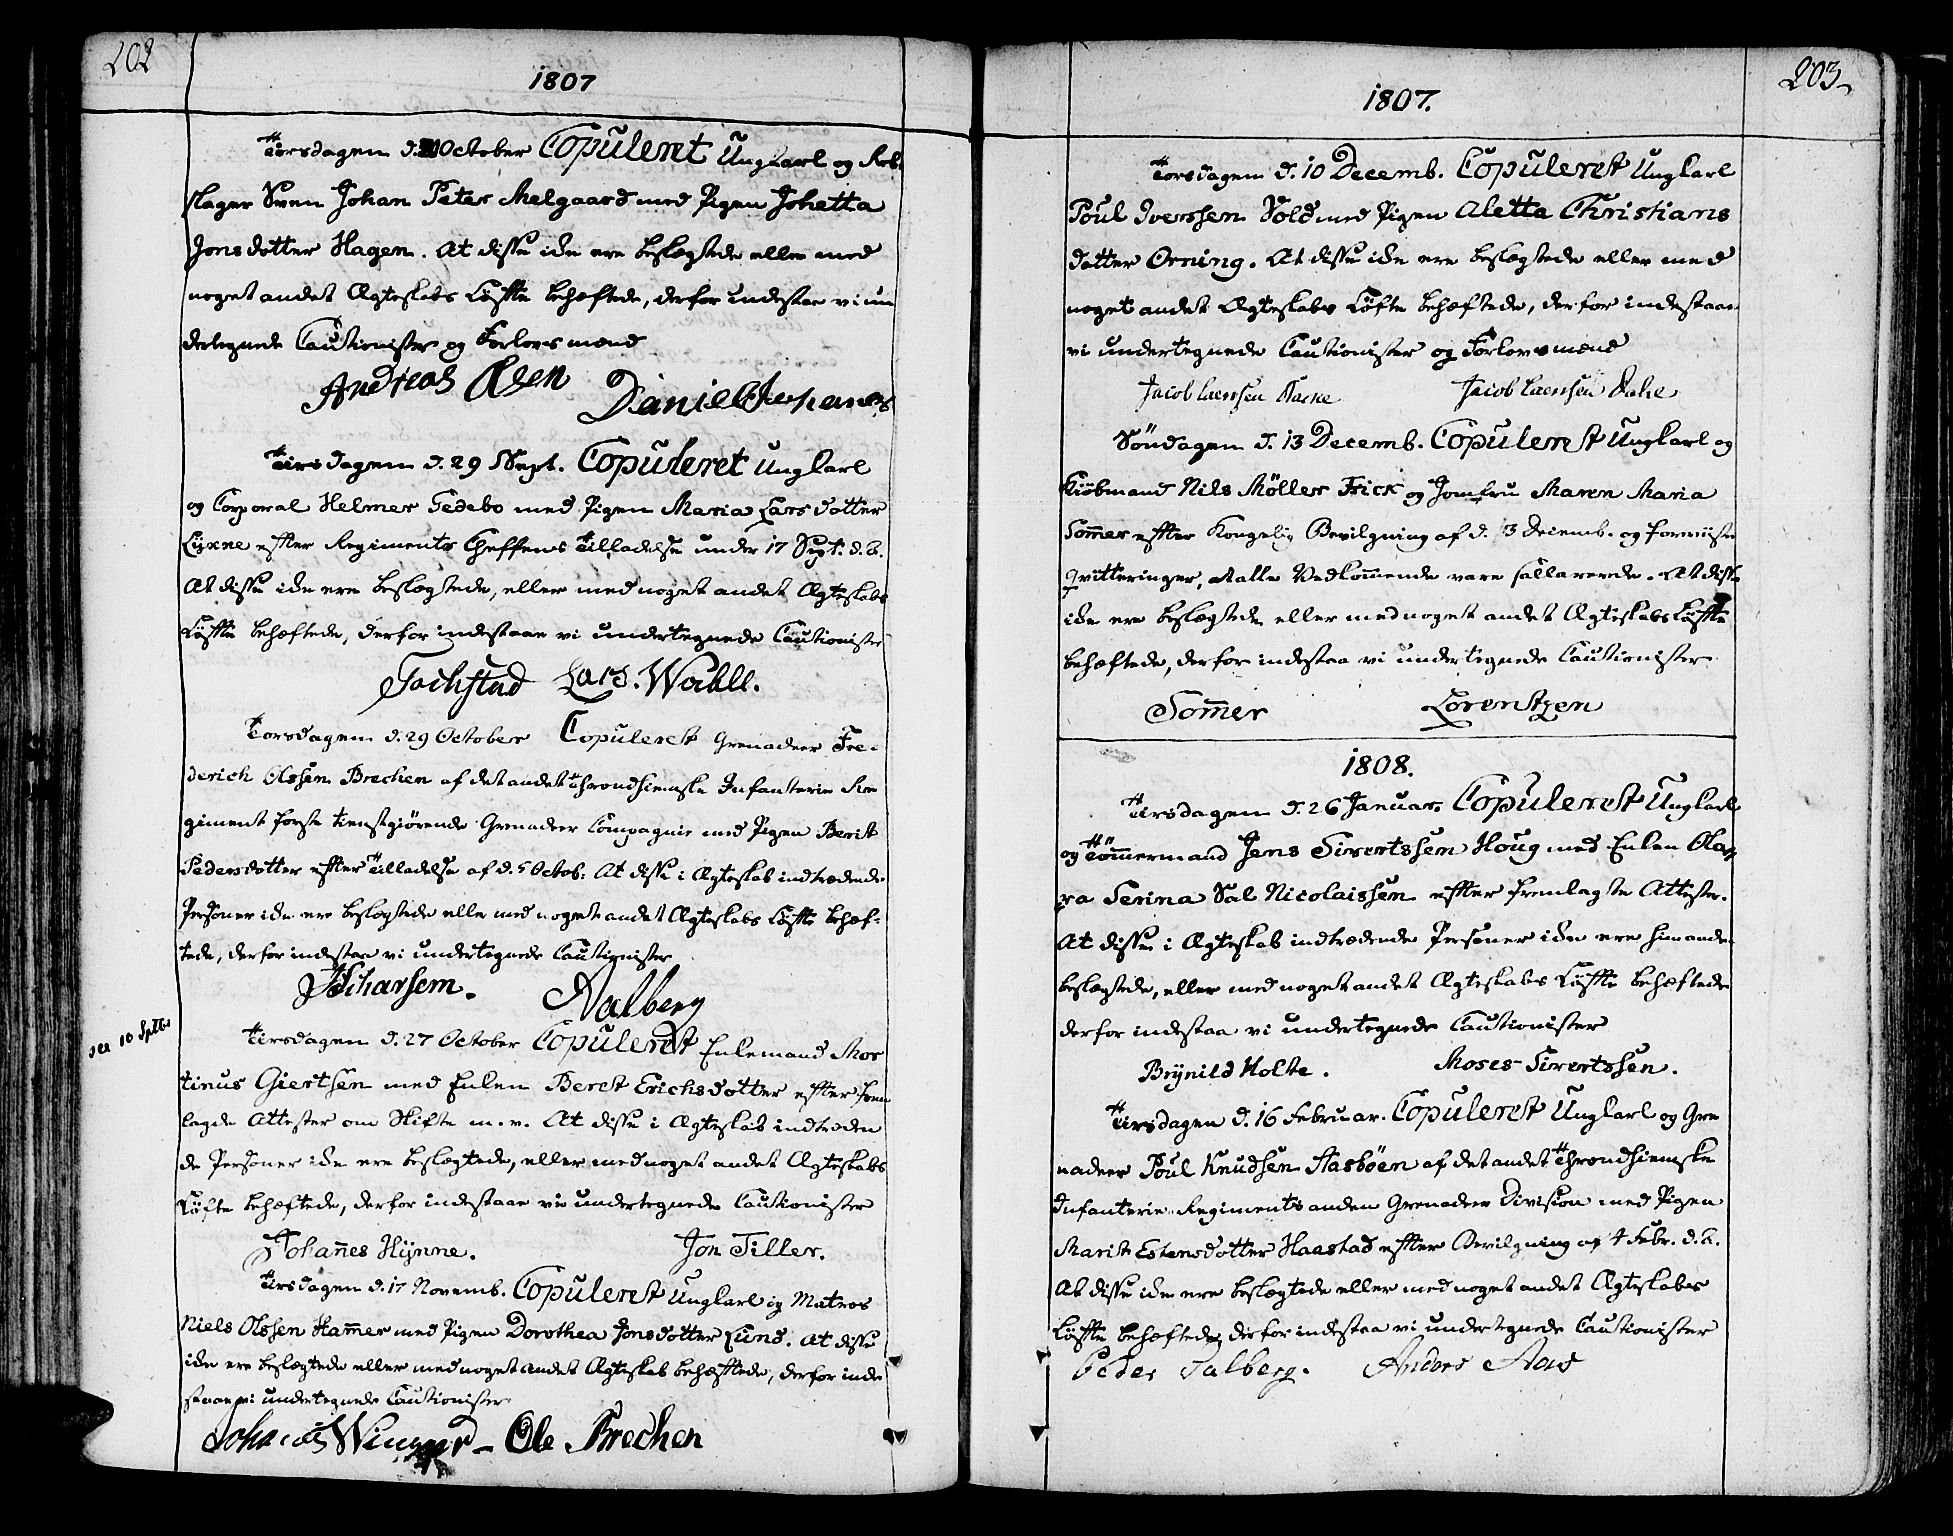 202
1807
Torsdagen d. October Copuleret Ungkarl og Reb
slager Sven Johan Peter Melgaard med Pigen Johetta
Jonsdotter Hagen. At disse icke ere beslægtede eller med
noget andet Ægteskabs Løffte behæftede, derfor indestaae vi un
dertegnede Cautionister og Forlovsmænd
Andreas Olsen Daniel
Tirsdagen d. 29 Sept. Copuleret Ungkarl
og Corporal Helmer Tedebo med Pigen Maria Larsdotter
Lÿxne effter Regiments Cheffens Tilladelse under 17 Sept. d. A.
At disse icke ere beslægtede, eller med noget andet Ægteskabs
Løffte behæftede, derfor indestaae vi undertegnede Cautionister
Lars. Woibll.
Torsdagen d. 29 October Copuleret Grenadeer Fre-
derich Olssen Brechen af det andet Throndhiemske Infanterie Re
giment første tienstgiørende Grenadeer Compagnie med Pigen Berit
Pedersdotter effter Tilladelse af d. 5 Octob. At disse i Ægteskab indtrædende
Personer icke ere beslægtede eller med noget andet Ægteskabs Løffte behæf-
tede, derfor indestaa vi undertegnede Cautionister
Aalberg
10 Sptbr
Tirsdagen d. 27 October Copuleret Enkemand Mor
tinus Giertsen med Enken Beret Erichsdotter effter frem
lagde Attester om Skifte m. v. At disse i Ægteskab indtræden
de Personer icke ere beslægtede, eller med noget andet Ægteskabs
Løfte behæftede, derfor indestaae vi undertegnede Cautionister
Johañes Hÿnne. Jon Tiller.
Tirsdagen d. 17 Novemb. Copuleret Ungkarl og Matros
Niels Olssen Ham̃er med Pigen Dorothea Jonsdotter Lund. At disse
icke ere beslægtede eller med noget andet Ægteskab behæfftede, derfor inde
staae vi undertegnede Cautionister
Ole Brechen
1807.
203
Torsdagen d. 10 Decemb. Copuleret Ungkarl
Poul Iverssen Vold med Pigen Aletta Christians
dotter Orning. At disse icke ere beslægtede eller med
noget andet Ægteskabs Løfte behæftede, derfor indestaae
vi undertegnede Cautionister og Forlovsmænd
Jacob Laerssen Jacob Laerssen
Søndagen d. 13 Decemb. Copuleret Ungkarl og
Kiøbmand Nils Møller Frick og Jomfru Maren Maria
Som̃er effter Kongelig Bevilgning af d. 3 Decemb. og foreviiste
Qvitteringer, at alle Vedkom̃ende vare . At disse
icke ere beslægtede eller med noget andet Ægteskabs Løffte
behæftede, derfor indestaa vi undertegnede Cautionister
Som̃er Lorentzen
1808.
Tirsdagen d. 26 Januar. Copuleret Ungkarl
og Tøm̃ermand Jens Sivertssen Houg med Enken Olar
ra Serina Sal Nicolaissen effter fremlagte Attester.
At disse i Ægteskab indtrædende Personer icke ere hinanden
beslægtede, eller med noget andet Ægteskabs Løffte behæftede
derfor indestaa vi undertegnede Cautionister
Brÿnild Holte. Moses Sivertssen.
Tirsdagen d. 16 Februar. Copuleret Ungkarl og Gre
nadeer Poul Knudsen Aasböen af det andet Throndhiemske
Infanterie Regiments anden Grenadeer Division med Pigen
Marit Estensdotter Haastad effter Bevilgning af 4 Febr. d. A.
At disse icke ere beslægtede eller med noget andet Ægteskabs
Løffte behæftede, derfor indestaa vi undertegnede Cautionister
Peder Salberg. Anders Aas